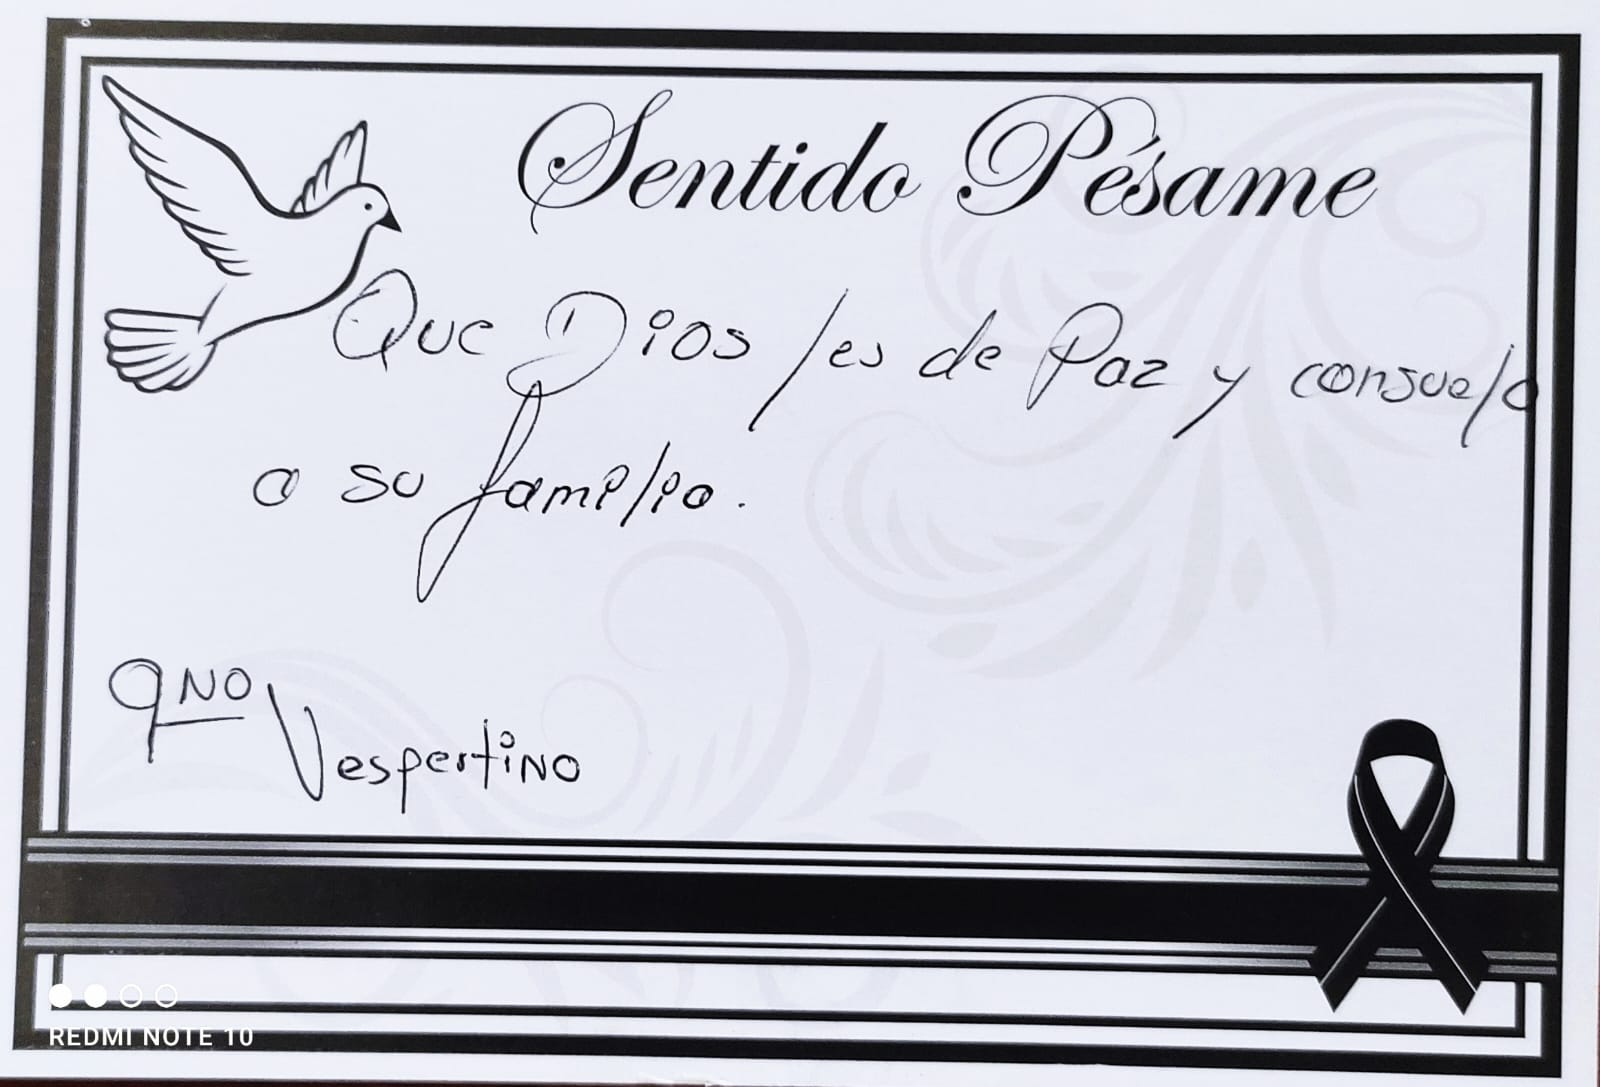 Sentido Pésame
Que Dios les de Paz y consuelo
a su familia.
9no
Vespertino
REDMI NOTE 10